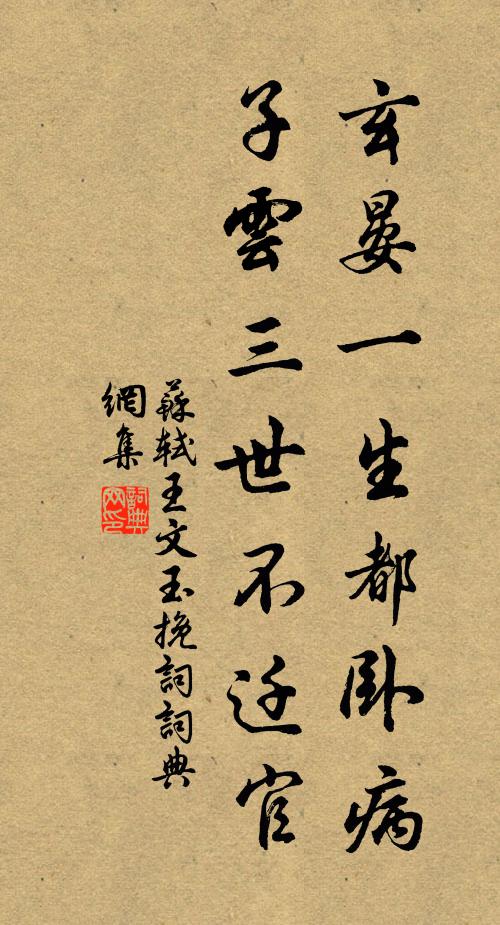 玄晏一生都卧病
子雲三世不迁官
蘇軾王文玉挽詞詞典
網集
詞典
网印